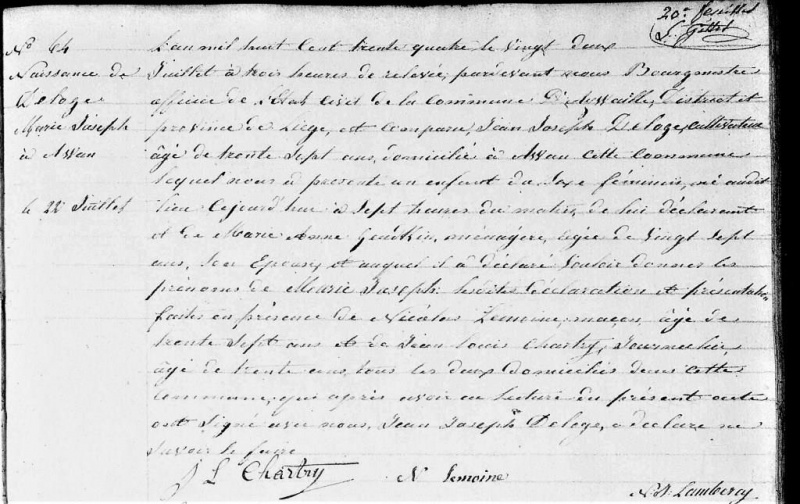 20e feuillet
L. Gillet
No 64
Naissance de
Deloge
Marie Joseph
à Awan
le 22 Juillet
L'an mil huit Cent trente quatre, le vingt deux
Juillet à trois heures de relevée, pardevant nous Bourgmestre
officier de l'état civil de la commune D'Aywaille, District et
province de Liège, est comparu, Jean Joseph Deloge, cultivateur
âgé de trente Sept ans, domicilié à Awan cette Commune
lequel nous à présenté un enfant du Sexe féminin, né audit
lieu Cejourd'hui à Sept heures du matin, de lui déclarant
et de Marie Anne ménagère, agée de Vingt Sept
ans, Son Epouse, et auquel il à déclaré Vouloir donner les
prénoms de Marie Joseph. lesdites Déclaration et présentation
faites en présence de Nicolas Lemoine, maçon, âgé de
trente Sept ans et de Jean Louis Chartry, Journalier,
âgé de trente ans, tous les deux domiciliés dans cette
Commune, qui après avoir eu lecture du présent acte
ont Signé avec nous, Jean Joseph Deloge, a déclaré ne
Savoir le faire
J L Chartry N Lemoine